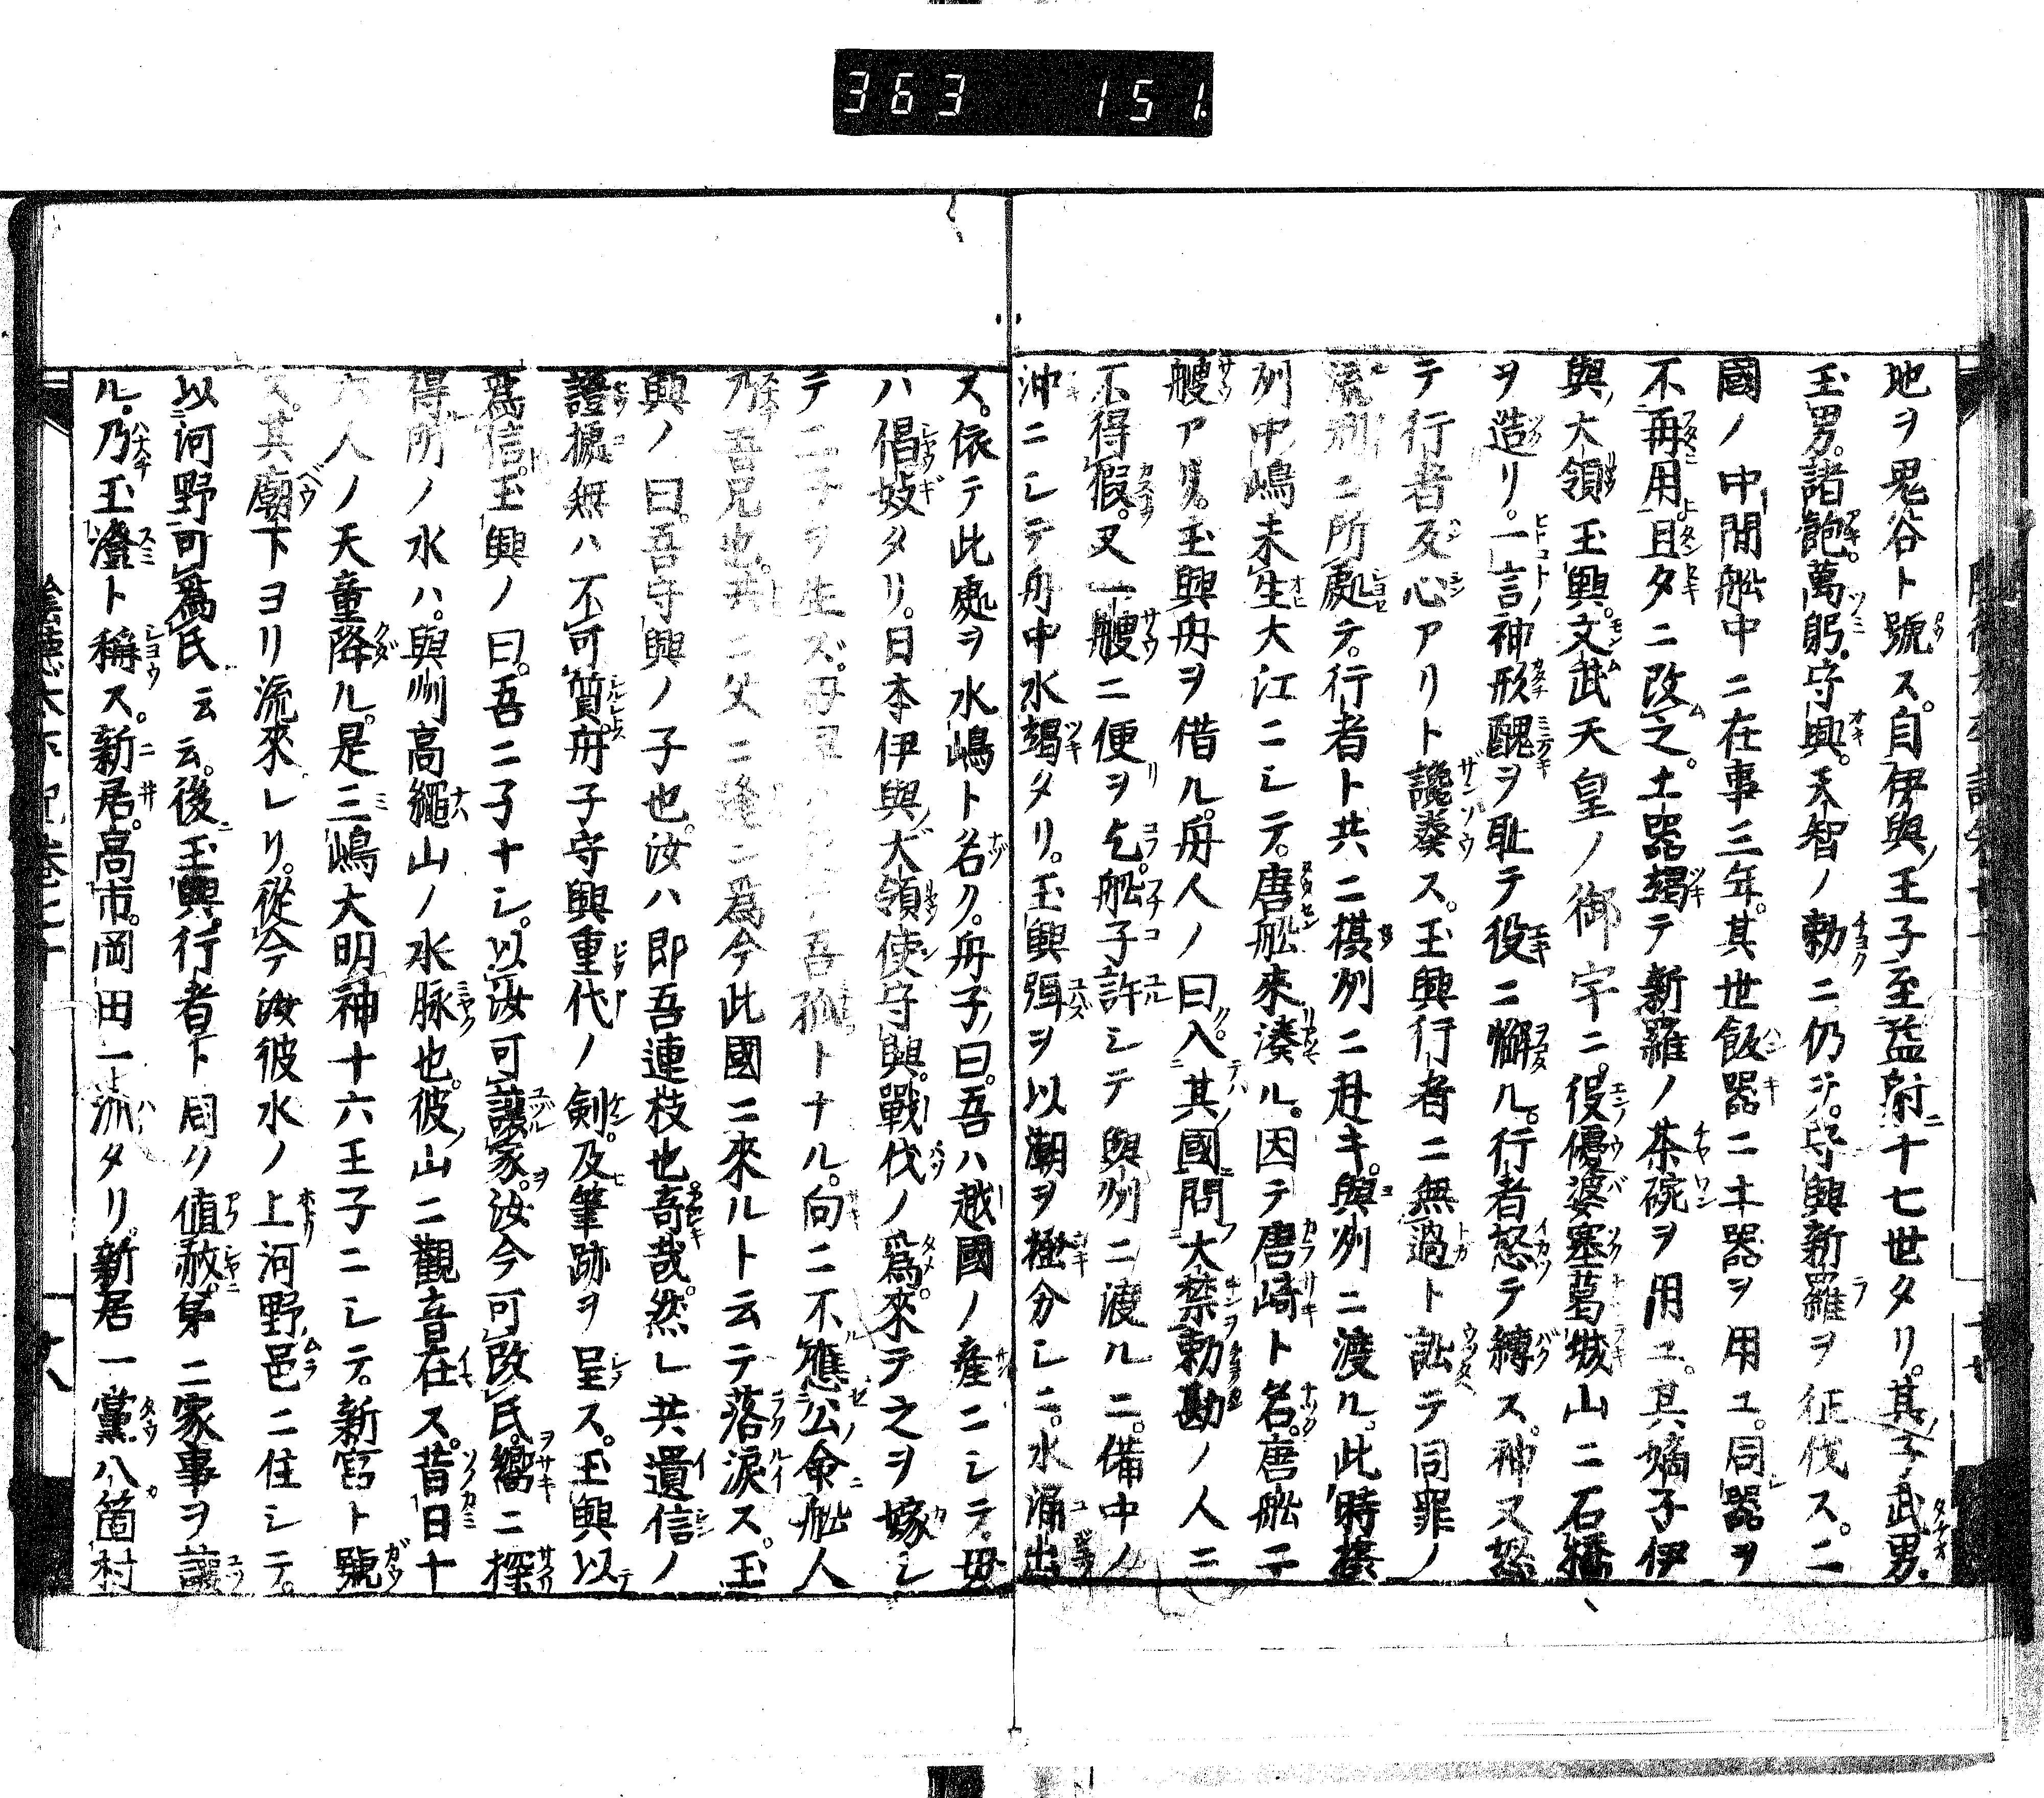 363 151
地ヲ鬼谷ト號ス。自伊與王子至益躬十七世タリ。其子武男。
玉男。諸飽。萬躬。守興。天智ノ勅ニ仍テ。守興新羅ヲ征伐ス。二
國ノ中間舩中ニ在事三年。其世飯器ニ土器ヲ用ユ。同器ヲ
不再用且タニ改之。土器竭テ新羅ノ茶碗ヲ用ユ。其嫡子伊
與ノ大領玉興。文武天皇ノ御宇ニ。役優婆塞葛城山ニ石橋
ヲ造リ。一言神形醜ヲ耻テ役ニ懈ル。行者怒テ縛ス。神又怒
テ行者反心アリト讒奏ス。玉興行者ニ無過ト訟テ同罪ノ
流刑ニ所處テ。行者ト共ニ摂州ニ赴キ。與州ニ渡ル。此時摂
州中嶋未生大江ニシテ。唐舩來湊ル。因テ唐崎ト名。唐舩二
艘アリ。玉興舟ヲ借ル。舟人ノ曰。入其國問大禁勅勘ノ人ニ
不得假。又一艘ニ便ヲ乞。舩子許シテ與州ニ渡ルニ。備中ノ
沖ニシテ舟中水竭タリ。玉興弭ヲ以潮ヲ極分シニ。水涌出
ス。依テ此處ヲ水嶋ト名ク。舟子曰。吾ハ越國ノ產ニシテ。母
ハ倡妓タリ。日本伊與大領使守興。戰伐ノ爲來テ之ヲ嫁シ
テ二子ヲ生ズ。吾孤トナル。向ニ不應公命舩人
乃吾兄也。共ニ父ニ逢ニ爲今此國ニ來ルト云テ落涙ス。玉
興ノ曰。吾守興ノ子也。汝ハ即吾連枝也。奇哉。然レ共遺信ノ
證據無ハ不可質。舟子守興重代ノ剣。及筆跡ヲ呈ス。玉興以
爲信。玉興ノ曰。吾ニ子ナシ。以汝可讓家。汝今可改氏。嚮ニ探
得所ノ水ハ。與州高繩山ノ水脉也。彼山ニ觀音在ス。昔日十
六人ノ天童降ル。是三嶋大明神十六王子ニシテ。新宮ト號
ス。其廟下ヨリ流來レリ。從今汝彼水ノ上河野邑ニ住シテ。
以河野可爲氏云云。後玉興。行者ト同ク値赦。第ニ家事ヲ讓
ル。乃玉澄ト稱ス。新居。高市。岡田一流タリ。新居一黨八箇村